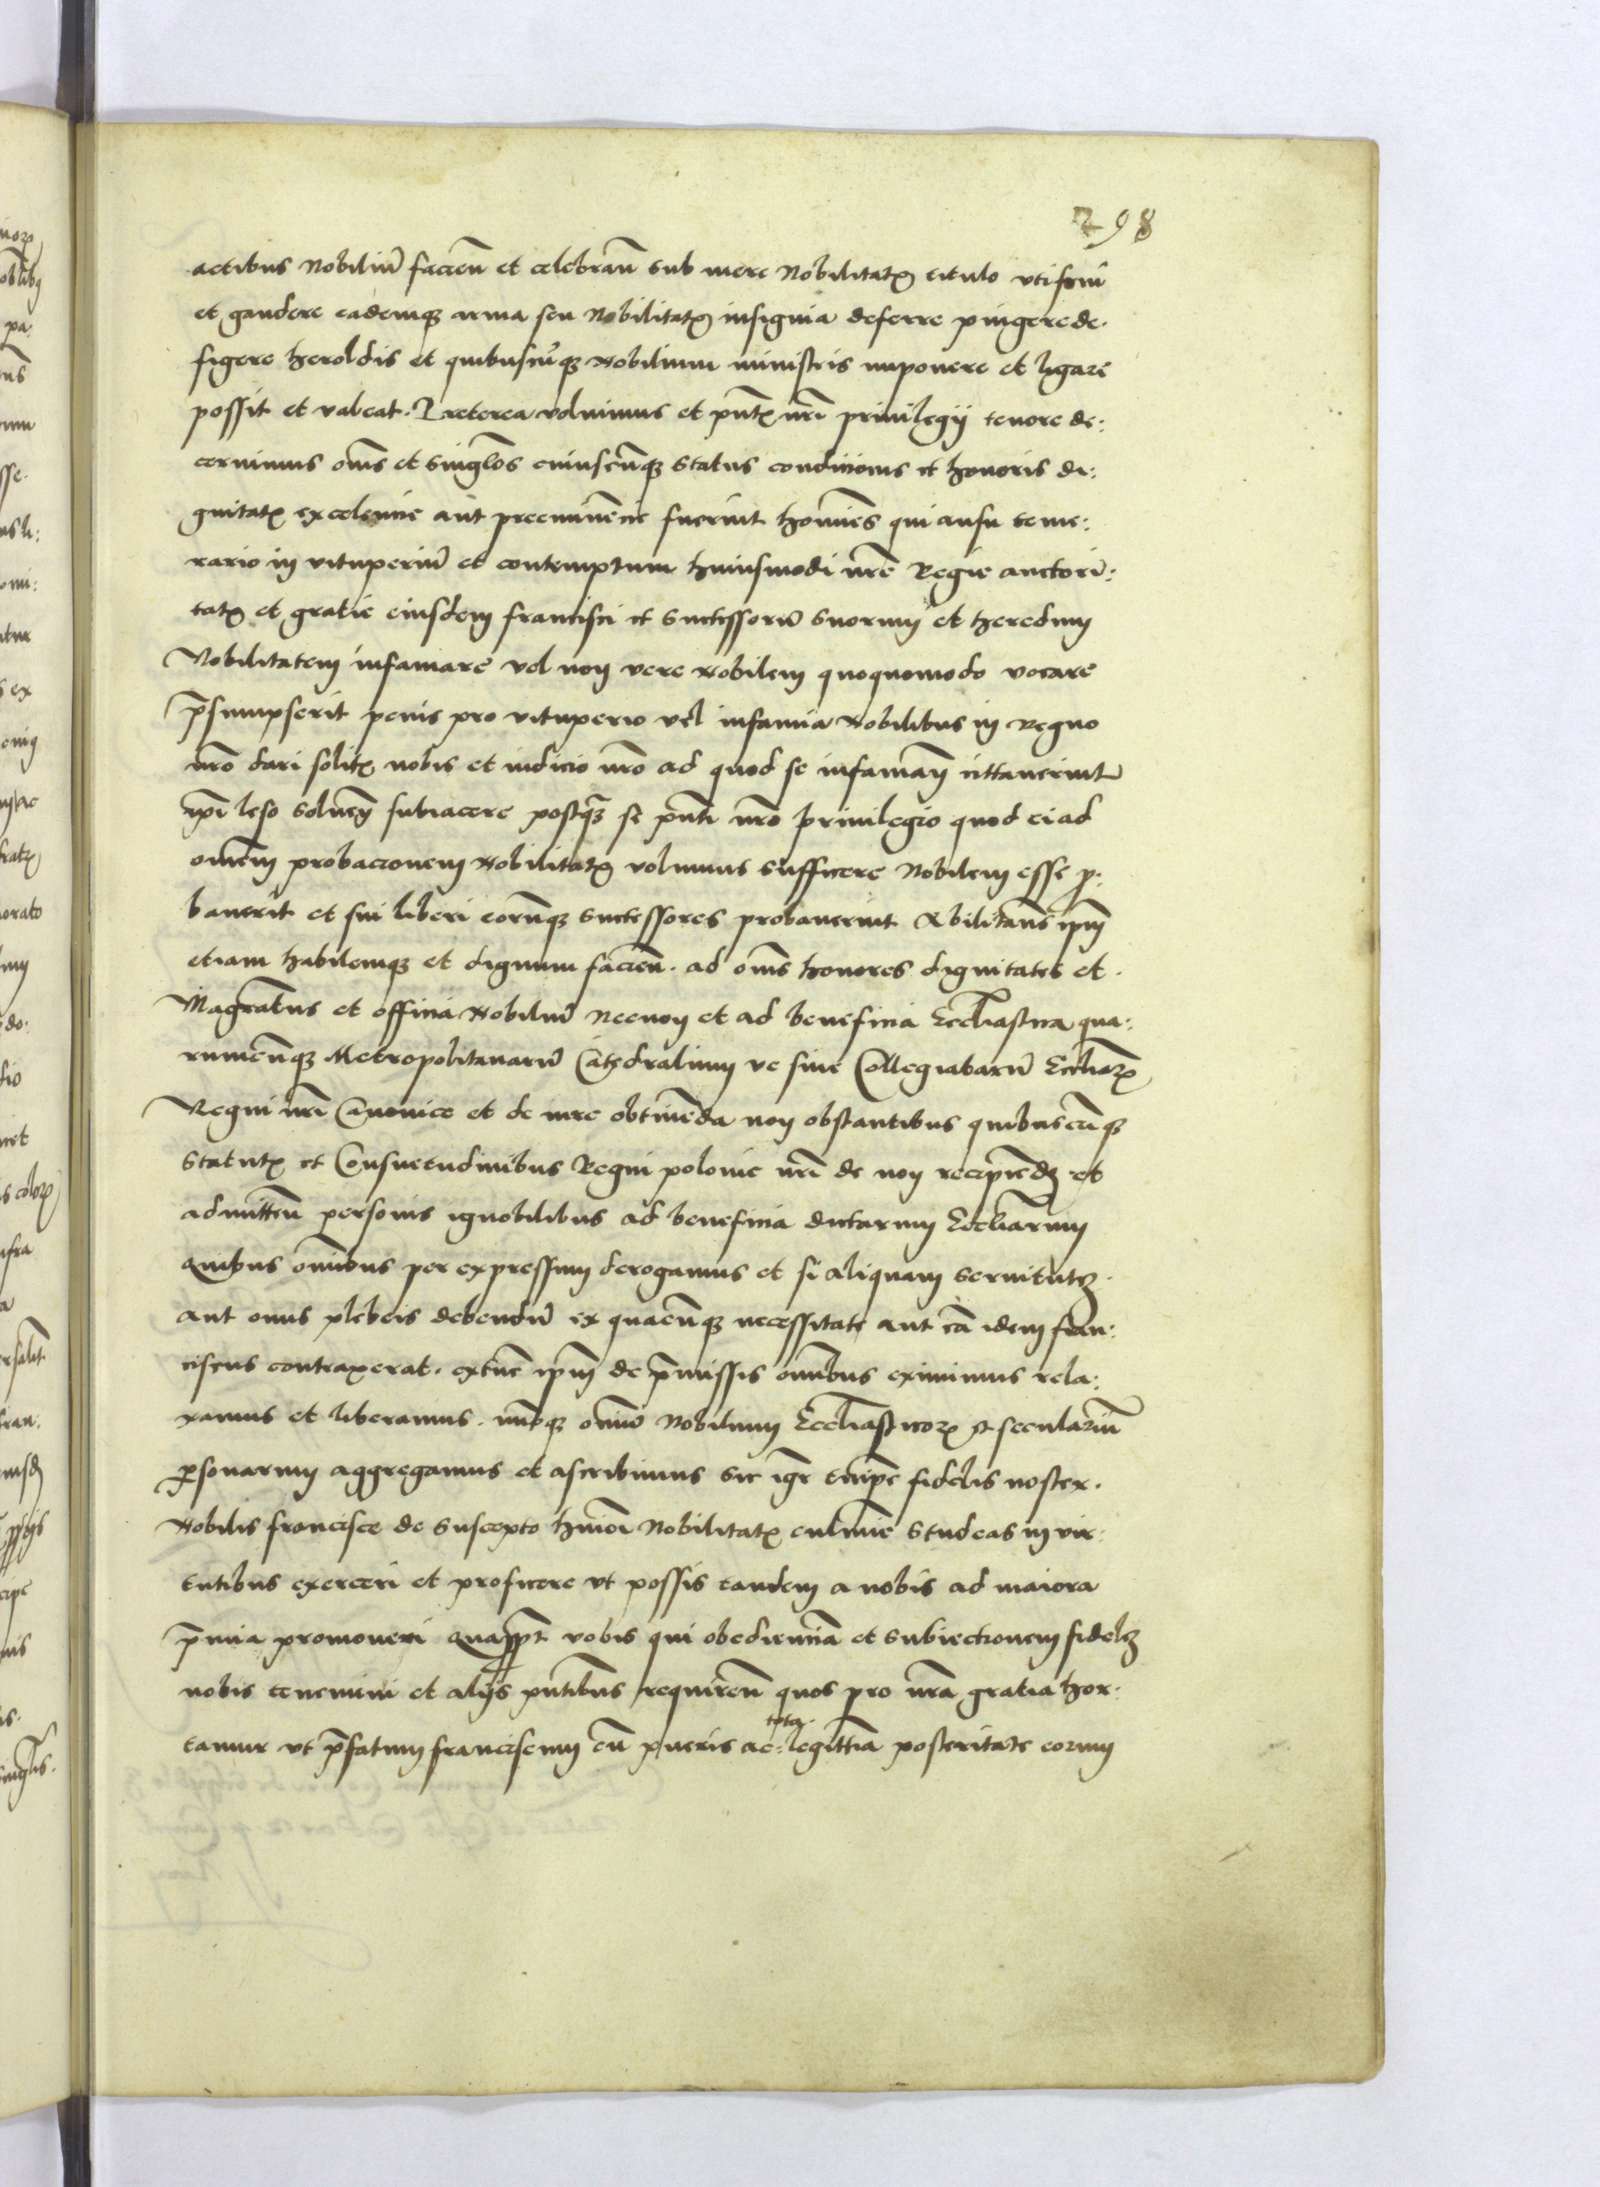 298
actibus Nobiliū facieñ et celebrañ sub mere Nobilitatꝭ titulo vti frui
et gaudere eademqꝫ arma seu Nobilitatꝭ insignia deferre pingere de⸗
figere heroldis et quibuscūqꝫ Nobilium ministris imponere et ligare
possit et valeat. Preterea volumus et pn̄tꝭ nrī priuilegij tenore de⸗
cernimus om̄s et singl̄os cuiuscūqꝫ status condicionis et honoris di⸗
gnitatꝭ excelencie aut preeminēcie fuerint hoīnes qui ausu teme⸗
rario in vituperiū et contemptum huiusmodi nrē Regie auctori⸗
tatꝭ et gratie eiusdem francisci et successorū suorum et heredum
Nobilitatem infamare vel non vere Nobilem quoquomodo vocare
p̄sumpserit penis pro vituperio vel infamia Nobilibus in Regno
nrō dari solitꝭ nobis et iudicio nrō ad quod se infamatꝭ cittauerint
ip̄i leso soluen̄ subiacere postqꝫ se pn̄ti nrō priuilegio quod ei ad
omnem probacionem Nobilitatꝭ volumus sufficere Nobilem esse ꝓ⸗
bauerit et sui liberi eorumqꝫ successores probauerint Abilitan̄s ip̄m
etiam habilemqꝫ et dignum facien̄. ad om̄s honores dignitates et.
Magrātus et officia Nobiliū Necnon et ad beneficia Eccl̄iastica qua⸗
rumcūqꝫ Metropolitanarū Cathedralium ve siue Collegiatarū Eccl̄iarꝝ
Regni nrī Canonice et de iure obtinēda non obstantibus quibuscūqꝫ
Statutꝭ et Consuetudinibus Regni polonie nrī de non recipiēdꝭ et
admitten̄ personis ignobilibus ad beneficia dictarum Eccl̄iarum
Quibus om̄ibus per expressum derogamus et si aliquam seruitutꝫ.
aut onus plebeis debendū ex quacūqꝫ necessitate aut cā idem fran⸗
ciscus contraxerat. extūc ip̄m de p̄missis om̄ibus eximimus rela⸗
xamus et liberamus. nūcqꝫ om̄iū Nobilium Eccl̄iasticorꝝ et secularium
ꝑsonarum aggregamus et ascribimus sic igr̄ tu ip̄e fidelis noster.
Nobilis francisce de suscepto hui̅o̅i Nobilitatꝭ culmine studeas in vir⸗
tutibus exerceri et proficere vt possis tandem a nobis ad maiora
p̄mia promoueri Quapp̄t vobis qui obedienciā et subiectionem fidelꝫ
nobis tenemini et alijs pn̄tibus requiren̄ quos pro nrā gratia hor⸗
tamur vt p̄fatum franciscum cū pueris ac tota legittīa posteritate eorum